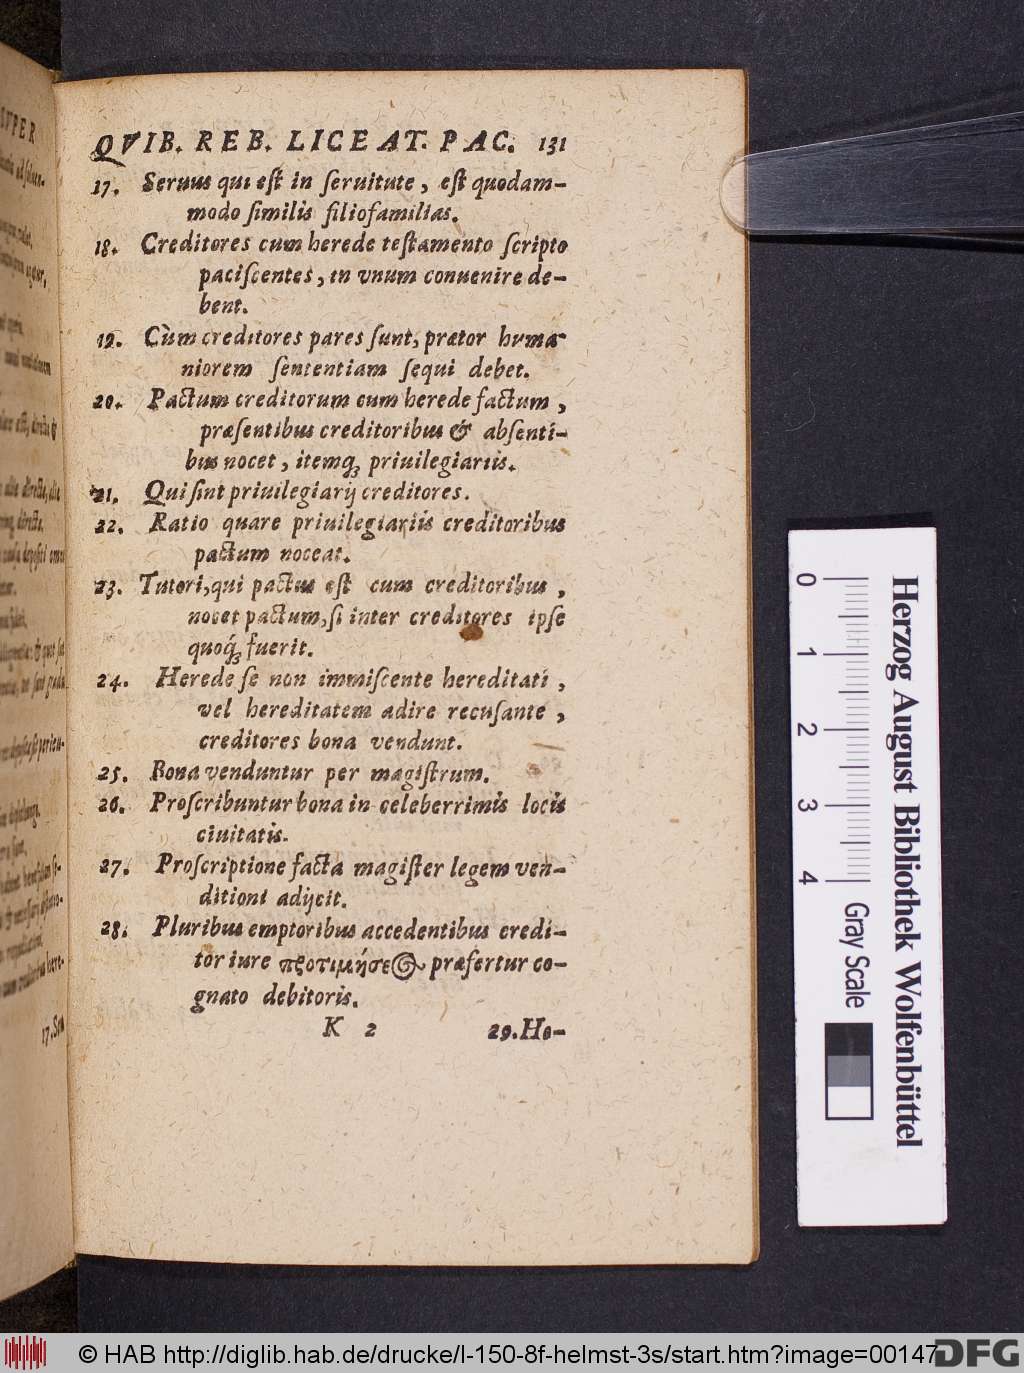 QVIB. REB. LICEAT. PAC. 131
17. Seruus qui eſt in ſeruitute, eſt quodam-
modo ſimilis filiofamilias.
18. Creditores cum herede teſtamento ſcripto
paciſcentes, in vnum conuenire de-
bent.
19. Cùm creditores pares ſunt, prætor huma-
niorem ſententiam ſequi debet.
20. Pactum creditorum cum herede factum,
præſentibus creditoribus & abſenti-
bus nocet, itemq; priuilegiariis.
21. Qui ſint priuilegiarij creditores.
22. Ratio quare priuilegiariis creditoribus
pactum noceat.
23. Tutori, qui pactus eſt cum creditoribus,
nocet pactum, ſi inter creditores ipſe
quoq; fuerit.
24. Herede ſe non immiſcente hereditati,
vel hereditatem adire recuſante,
creditores bona vendunt.
25. Bona venduntur per magiſtrum.
26. Proſcribuntur bona in celeberrimis locis
ciuitatis.
27. Proſcriptione facta magiſter legem ven-
ditioni adijcit.
28. Pluribus emptoribus accedentibus credi-
tor iure προτιμήσεως præfertur co-
gnato debitoris.
K 2 29. He-
SVPER
17. Ser
0 1 2 3 4
Gray Scale
Herzog August Bibliothek Wolfenbüttel
© HAB http://diglib.hab.de/drucke/l-150-8f-helmst-3s/start.htm?image=00147
DFG